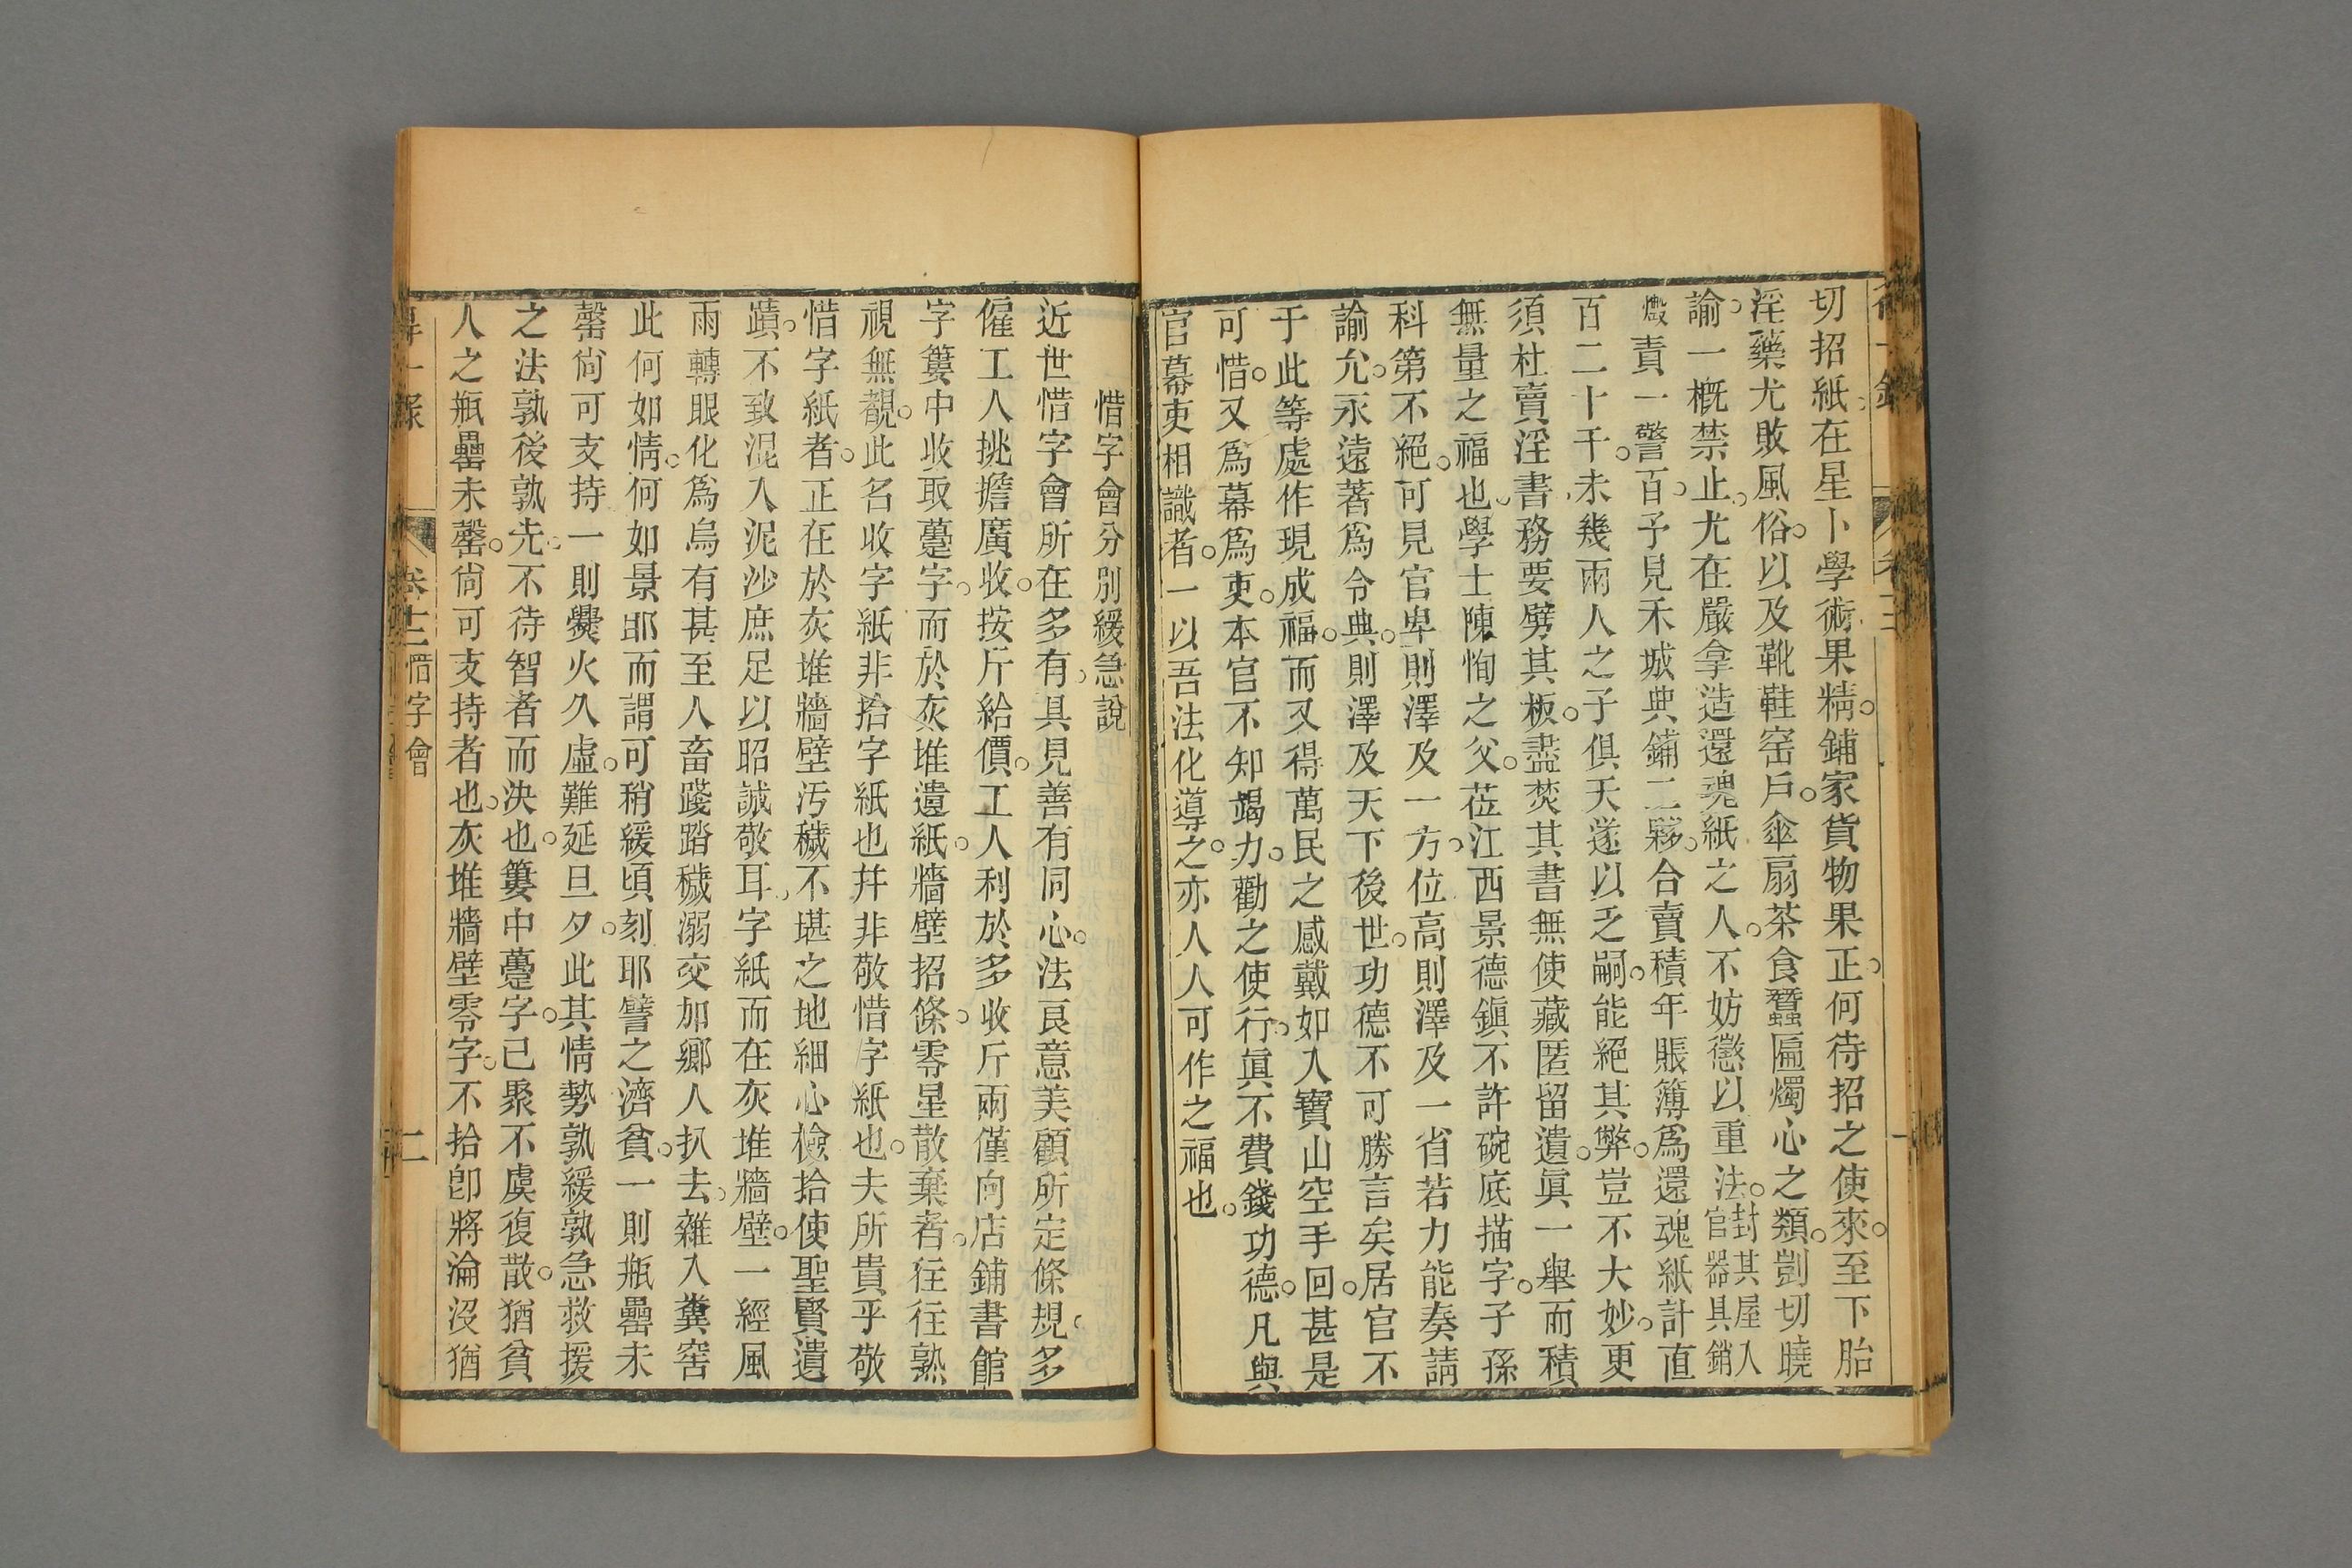 切招紙在星卜學術果精鋪家貨物果正何待招之使來至下胎
淫藥尤敗風俗以及靴鞋窑戶傘扇茶食蠶匾燭心之類剴切曉
諭一概禁止尤在嚴拿造還魂紙之人不妨懲以重法封其屋入官器具銷
燬責一警百予見禾城典鋪二夥合賣積年賬簿爲還魂紙計直
百二十千未幾兩人之子俱夭遂以乏嗣能絕其弊豈不大妙更
須杜賣淫書務要劈其板盡焚其書無使藏匿留遺眞一舉而積
無量之福也學士陳恂之父莅江西景德鎭不許碗底描字子孫
科第不絕可見官卑則澤及一方位高則澤及一省若力能奏請
諭允永遠著爲令典則澤及天下後世功德不可勝言矣居官不
于此等處作現成福而又得萬民之感戴如入寶山空手回甚是
可惜又爲幕爲吏本官不知竭力勸之使行眞不費錢功德凡與
官幕吏相識者一以吾法化導之亦人人可作之福也
惜字會分別緩急說
近世惜字會所在多有具見善有同心法良意美顧所定條規多
僱工人挑擔廣收按斤給價工人利於多收斤兩僅向店鋪書館
字簍中收取躉字而於灰堆遺紙牆壁招條零星散棄者往往熟
視無覩此名收字紙非拾字紙也幷非敬惜字紙也夫所貴乎敬
惜字紙者正在於灰堆牆壁汚穢不堪之地細心檢拾使聖賢遺
蹟不致混入泥沙庶足以昭誠敬耳字紙而在灰堆牆壁一經風
雨轉眼化爲烏有甚至人畜踐踏穢溺交加鄉人扒去雜入糞窖
此何如情何如景耶而謂可稍緩頃刻耶譬之濟貧一則瓶罍未
罄尙可支持一則爨火久虛難延旦夕此其情勢孰緩孰急救援
之法孰後孰先不待智者而決也簍中躉字已聚不虞復散猶貧
人之瓶罍未罄尙可支持者也灰堆牆壁零字不拾卽將淪沒猶
得一錄 卷十二 惜字會 二